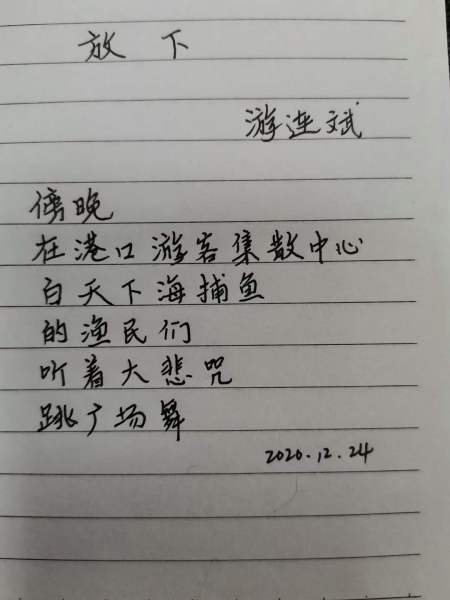 放下
游连斌
傍晚
在港口游客集散中心
白天下海捕鱼
的渔民们
听着大悲咒
跳广场舞
2020.12.24